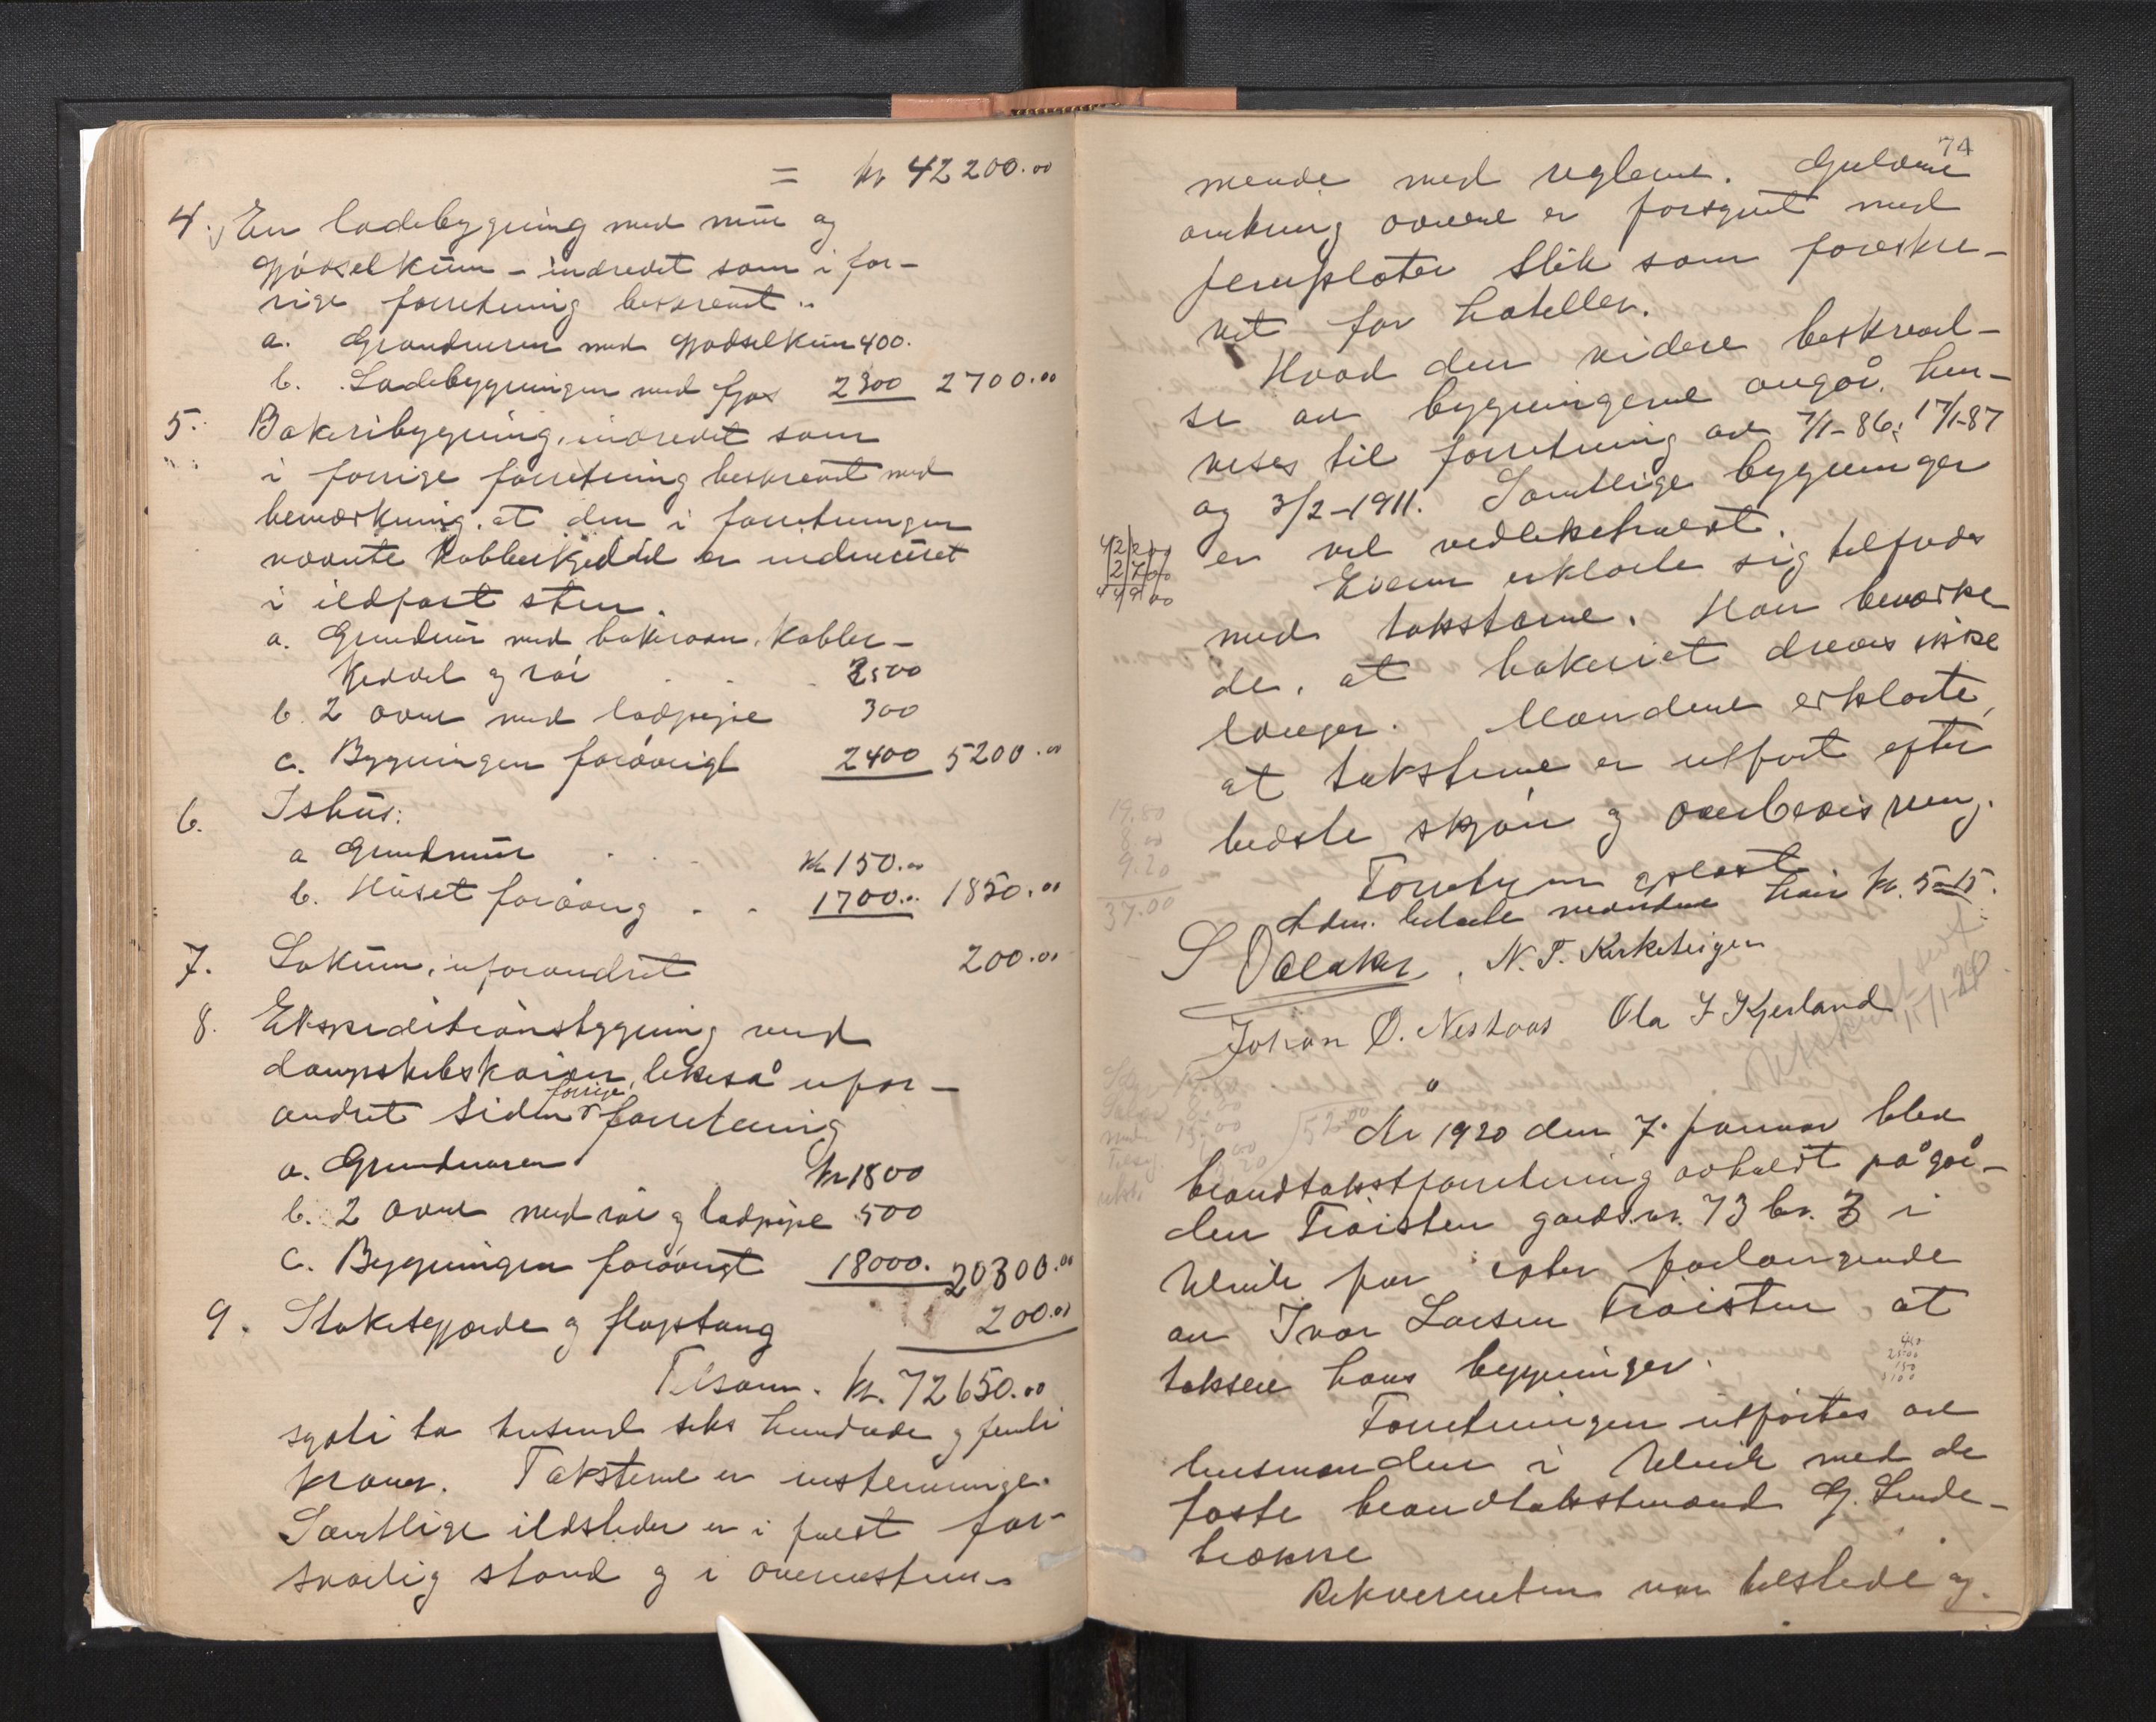 = kr 42200.00
4. En ladebygning med mur og
gjødselkum - indredet som i for-
rige forretning beskrevet.
a. Grundmuren med gjødselkum 400.
b. Ladebygningen med fjøs 2300 2700.00
5. Bakeribygning, indredet som
i forrige forretning beskrevet med
bemærkning, at den i forretningen
nævnte kobberkjeddel er indmuret
i ildfast sten.
a. Grundmur med bakerovn, kobber-
keddel og rør . . . 2500
b. 2 ovner med ladpipe 300
c. Bygningen forøvrigt 2400 5200.00
6. Ishus:
a Grundmur . . . kr 150.00
b. Huset forøvrig - - 1700.00 1850.00
7. Lokum, uforandret 200.00
8. Ekspeditionsbygning ved
dampskibskaien, likeså ufor-
andret siden forrige forretning
a. Grundmuren kr 1800
b. 2 ovner med rør og ladpipe 500
c. Bygningen forøvrigt 18000. 20300.00
9. Stakitgjærde og flagstang 200.00
Tilsam. kr. 72650.00
sytti to tusend seks hundrede og femti
kroner. Taksterne er enstemmige.
Samtlige ildsteder er i fuldt for-
svarlig stand og i overenstem-
74
mende med reglerne. Gulvene
omkring ovnene er forsynet med
jernplater slik som foreskre-
vet for hoteller.
Hvad den videre beskrivel-
se av bygningerne angår, hen-
vises til forretning av 7/1-86, 17/1-87
og 3/2-1911. Samtlige bygninger
er vel vedlikeholdt.
42200
2700
44900
Eieren erklærte sig tilfreds
med taksterne. Han bemærke-
de, at bakeriet drives ikke
længer. Mændene erklærte,
at taksterne er utført efter
bedste skjøn og overbevisning.
19.80
8.00
9.20
37.00
Forretningen oplæst
Adm. betalte mændene hver kr. 5.15.
S Vælaker, N. T. Kirketeigen
Johan O. Nestaas Ola I Kjerland
15/1-20
År 1920 den 7. januar blev
brandtakstforretning avholdt på går-
den Trøisten gårdsnr. 73 br. 3 i
Ulvik for efter forlangende
av Ivar Larsen Trøisten at
taksere hans bygninger.
Forretningen utførtes av
lensmanden i Ulvik med de
faste brandtakstmænd G. Linde-
brække
Rekvirenten var tilstede og